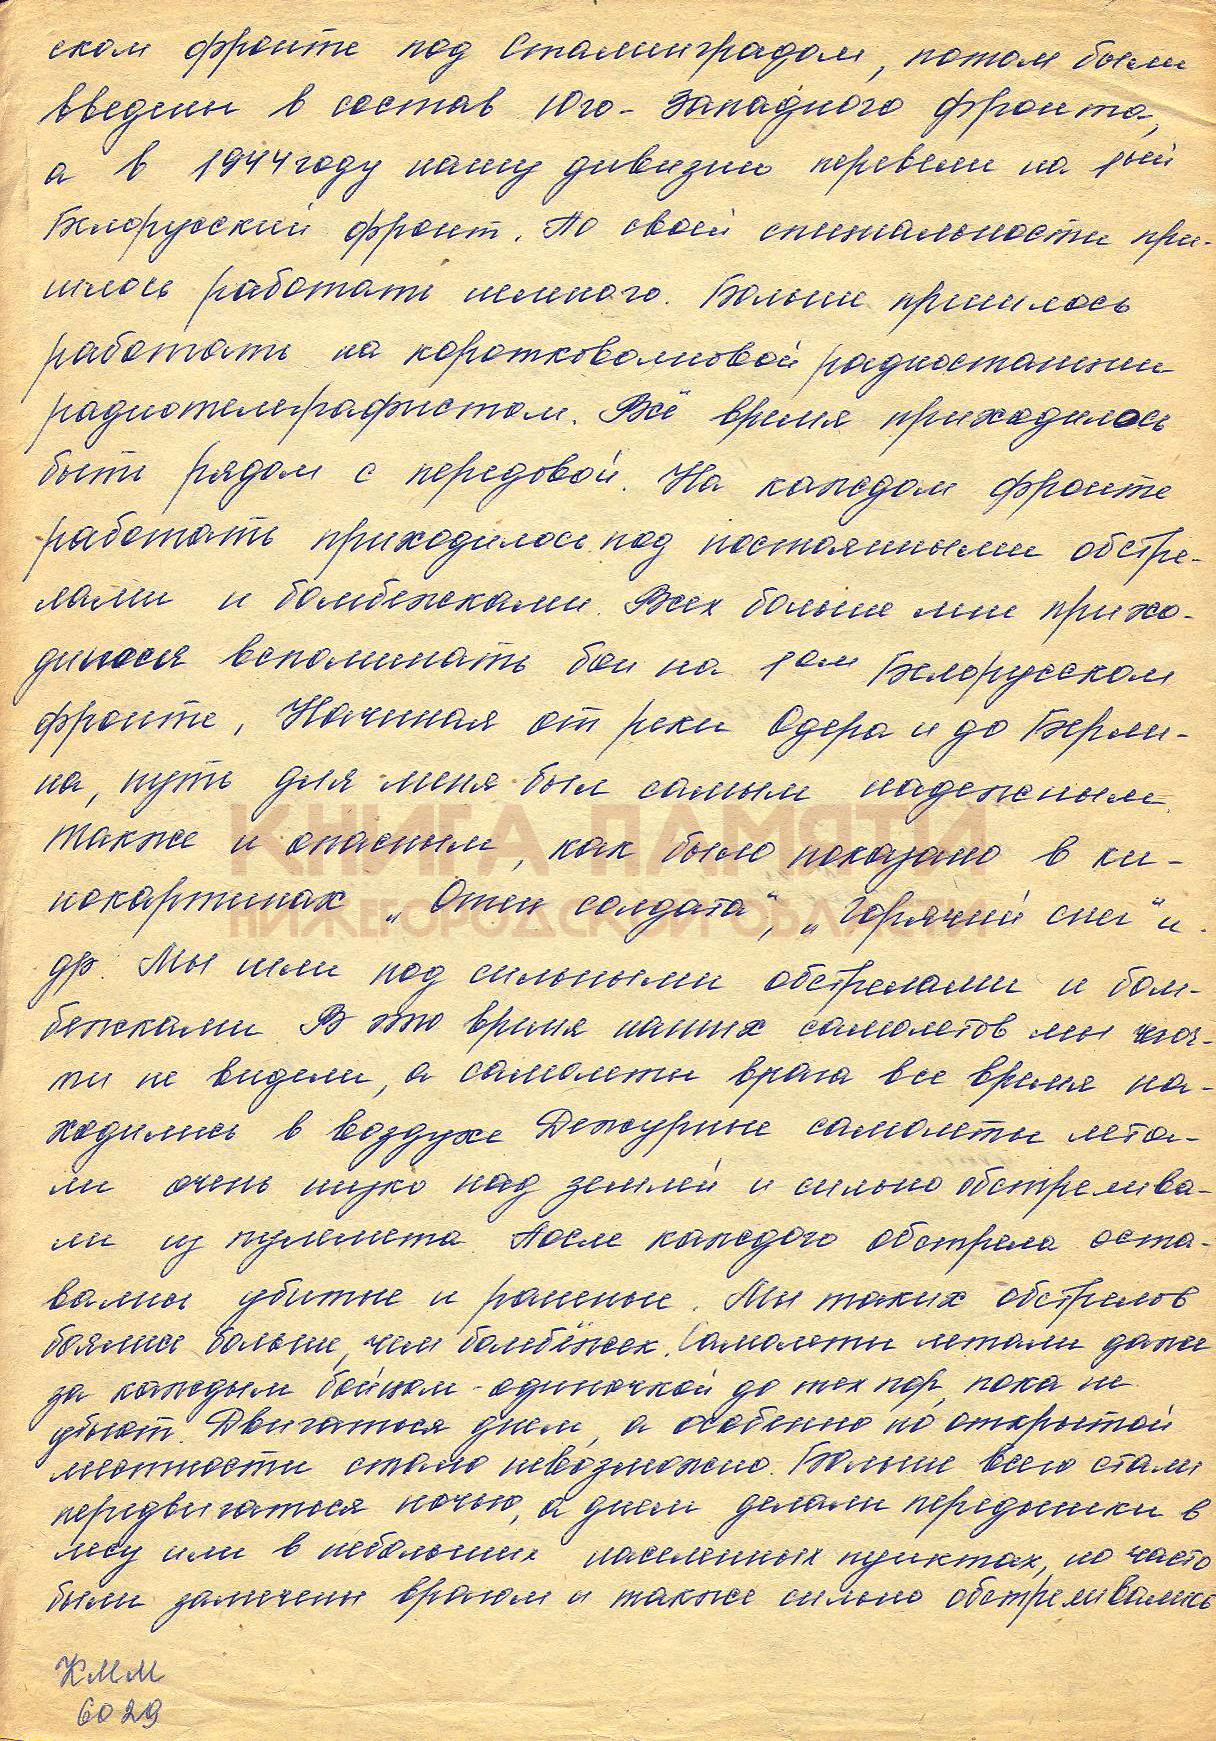 ском фронте под Сталинградом, потом были
введены в состав Юго-Западного фронта,
а в 1944 году нашу дивизию перевели на 1ый
Белорусский фронт. По своей специальности при-
шлось работать немного. Больше пришлось
работать на коротковолновой радиостанции
радиотелеграфистом. Всё время приходилось
быть рядом с передовой. На каждом фронте
работать приходилось под постоянными обстре-
лами и бомбежками. Всех больше мне прихо-
диться вспоминать бои на 1ом Белорусском
фронте, Начиная от реки Одера и до Берли-
на, путь для меня был самым надежным.
также и опасным, как было показано в ки-
нокартинах „Отец солдата", „Горячий снег" и
др. Мы шли под сильными обстрелами и бом-
бежками В это время наших самолетов мы поч-
ти не видели, а самолеты врага все время на-
ходились в воздухе Дежурные самолеты лета-
ли очень низко над землей и сильно обстрелива-
ли из пулемета После каждого обстрела оста-
вались убитые и раненые. Мы таких обстрелов
боялись больше, чем бомбёжек. Самолеты летали даже
за каждым бойцом-одиночкой до тех пор, пока не
убьют. Двигаться днем, а особенно по открытой
местности стало невозможно. Больше всего стали
передвигаться ночью, а днем делали передышки в
лесу или в небольших населенных пунктах, но часто
были замечены врагом и также сильно обстреливались
КММ
6029
КНИГА ПАМЯТИ
НИЖЕГОРОДСКОЙ ОБЛАСТИ